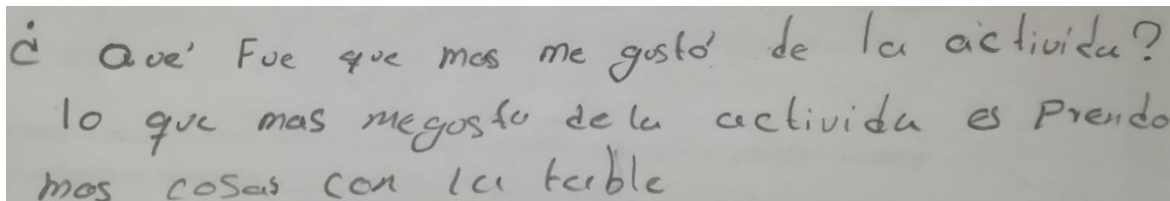 ¿ Que' Fue que mas me gusto' de la activida?
lo que mas megosto dela activida es Prendo
mas cosas con la table